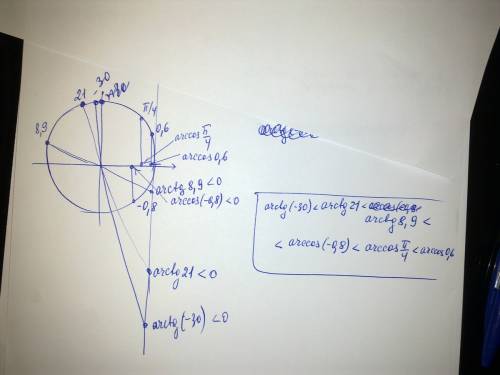 -30
21
π/4
8,9
0,6
arccos π/4
arccos 0,6
arctg 8,9 < 0
arccos(-0,8) < 0
-0,8
arctg 21 < 0
arctg(-30) < 0
arctg(-30) < arctg 21 <
arctg 8,9 <
< arccos(-0,8) < arccos π/4 < arccos 0,6